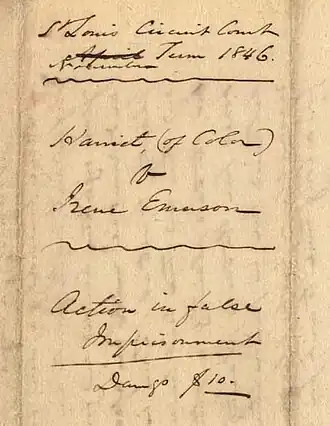 St Louis Circuit Court
April Term 1846.
November
Harriet, (of Color)
v
Irene Emerson
Action in false
Imprisonment
Damgs $10.